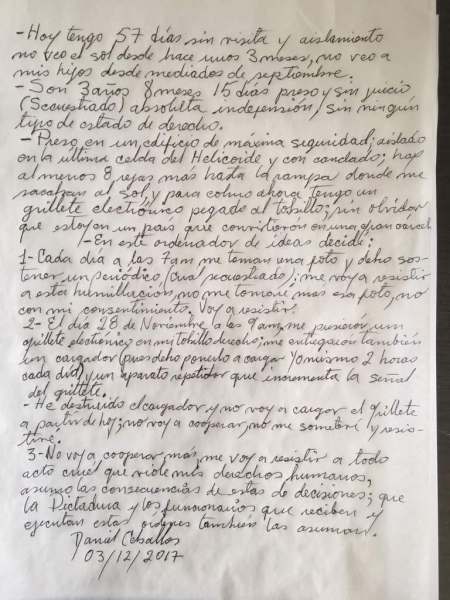 - Hoy tengo 57 días sin visita y aislamiento
no veo el sol desde hace unos 3 meses, no veo a
mis hijos desde mediados de septiembre.
- Son 3 años 8 meses 15 días preso y sin juicio
(Secuestrado) absoluta indefensión, sin ningún
tipo de estado de derecho.
- Preso en un edificio de máxima seguridad; aislado
en la última celda del Helicoide y con candado; hay
al menos 8 rejas más hasta la rampa donde me
sacaban al sol, y para colmo ahora tengo un
grillete electrónico pegado al tobillo; sin olvidar
que estoy en un país que convirtieron en una gran carcel
- En este ordenador de ideas decidí:
1- Cada día a las 7am me toman una foto y debo sos-
tener un periódico (cual secuestrado); me voy a resistir
a esta humillación, no me tomaré más esa foto, no
con mi consentimiento. Voy a resistir.
2- El día 28 de Noviembre a las 9am, me pusieron un
grillete electrónico en mi tobillo derecho; me entregaron también
un cargador (pues debo ponerlo a cargar yo mismo 2 horas
cada día) y un aparato repetidor que incrementa la señal
del grillete.
- He destruido el cargador y no voy a cargar el grillete
a partir de hoy; no voy a cooperar, no me someteré y resis-
tiré.
3- No voy a cooperar más, me voy a resistir a todo
acto cruel que viole mis derechos humanos,
asumo las consecuencias de estas decisiones; que
la Dictadura y los funcionarios que reciben y
ejecutan estas órdenes también las asuman.
Daniel Ceballos
03/12/2017